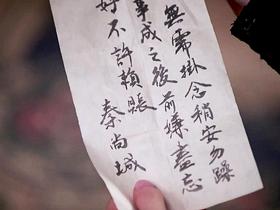 無需掛念稍安勿躁
事成之後前嫌盡忘
好不許賴賬
秦尚城